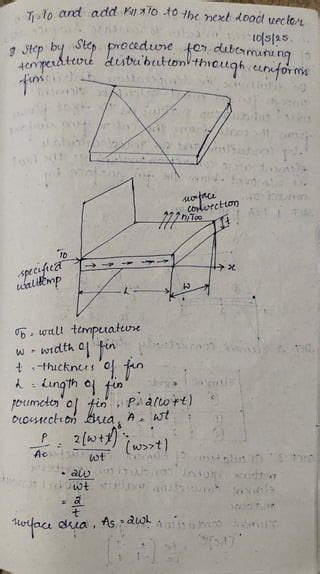 T1 = T0 and add K11 x T0 to the next load vector
10/9/25.
Step by Step procedure for determining
temperature distribution through uniform
fins
surface
convection
h, T∞
t
T0
specified
wall temp
x
L
w
T0 = wall temperature
w = width of fin
t = thickness of fin
L = Length of fin
perimeter of fin, P = 2(w+t)
crossection area, A = wt
P/Ac = 2(w+t)/wt (w>>t)
= 2w/wt
= 2/t
surface area, As = 2wL